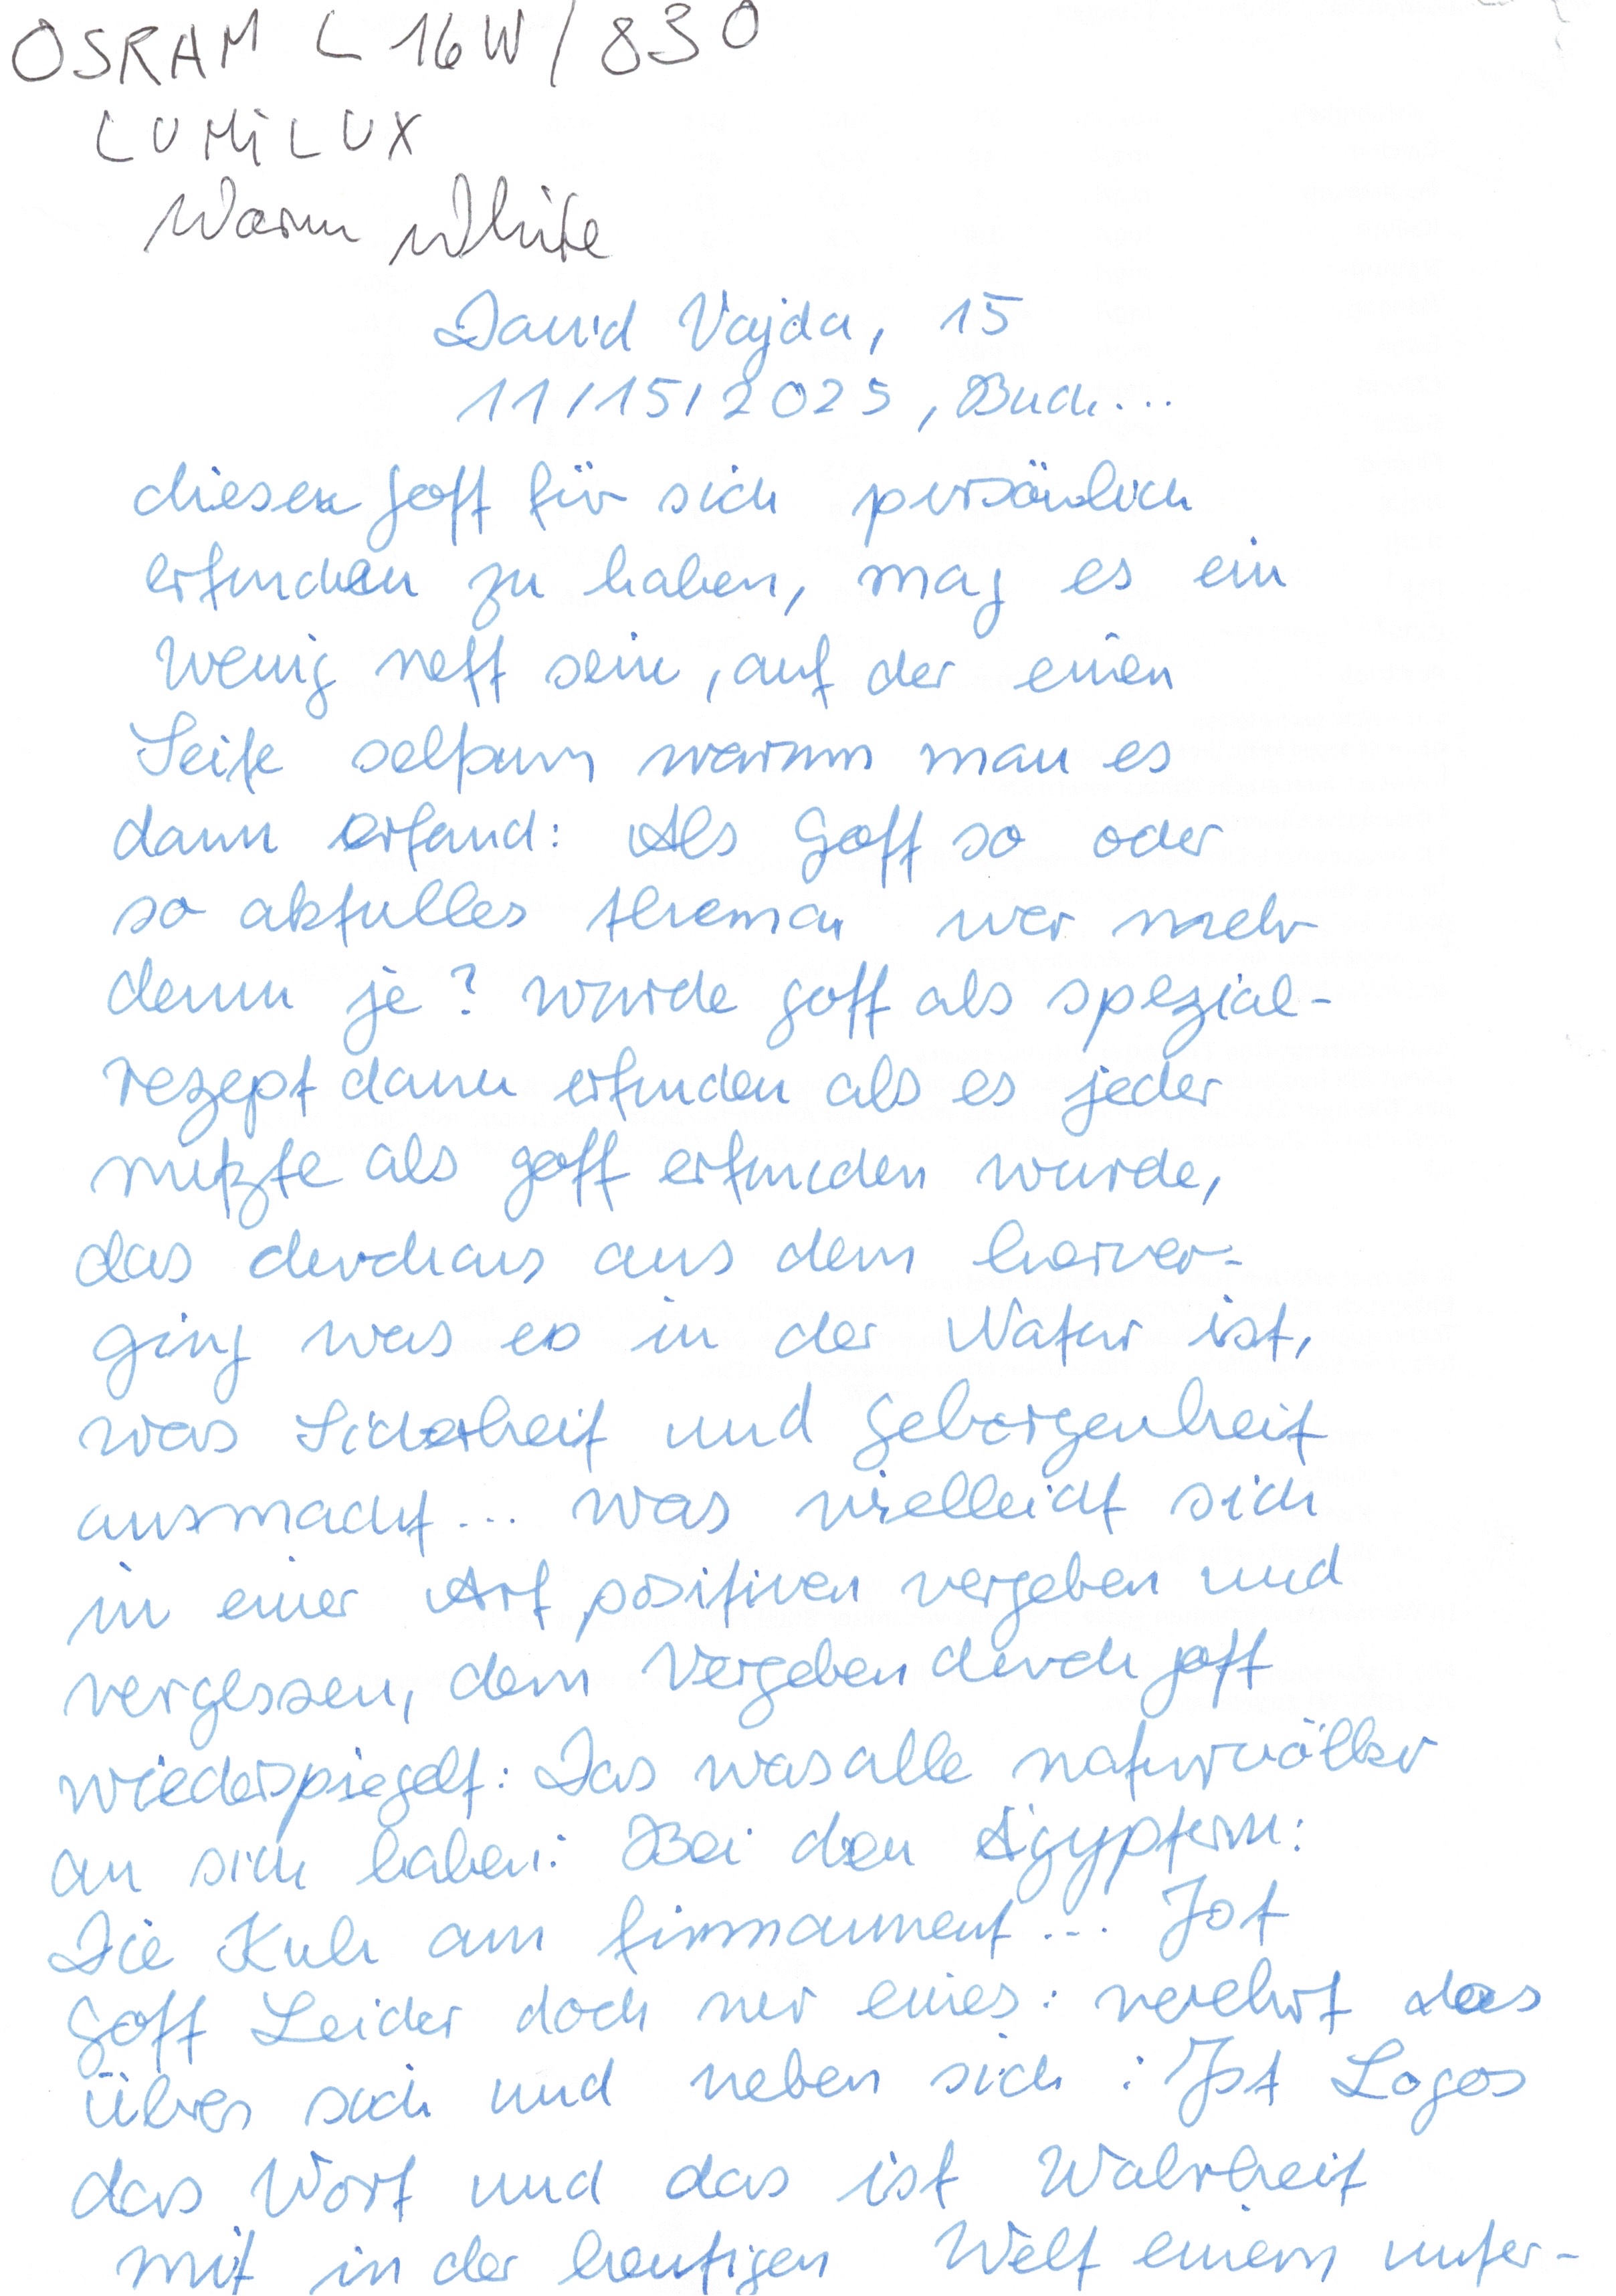 OSRAM L 16W/830
LUMiLUX
Warm White
David Vajda, 15
11/15/2025, Buch...
diesen gott für sich persönlich
erfunden zu haben, mag es ein
wenig nett sein, auf der einen
Seite warum man es
dann erfand: Als Gott so oder
so aktuelles thema wer mehr
denn je? wurde gott als spezial-
rezept dann erfunden als es jeder
nutzte als gott erfunden wurde,
das durchaus aus dem hervor-
ging was es in der Natur ist,
was Sicherheit und geborgenheit
ausmacht... was vielleicht sich
in einer Art positiven vergeben und
vergessen, dem Vergeben durch gott
wiederspiegelt: Das was alle naturvölker
an sich haben: Bei den Ägyptern:
Die Kuh am firmanment... Ist
Gott Leider doch nur eines: verehrt das
über sich und neben sich: Ist Logos
das Wort und das ist Wahrheit
mit in der heutigen Welt einem unter-